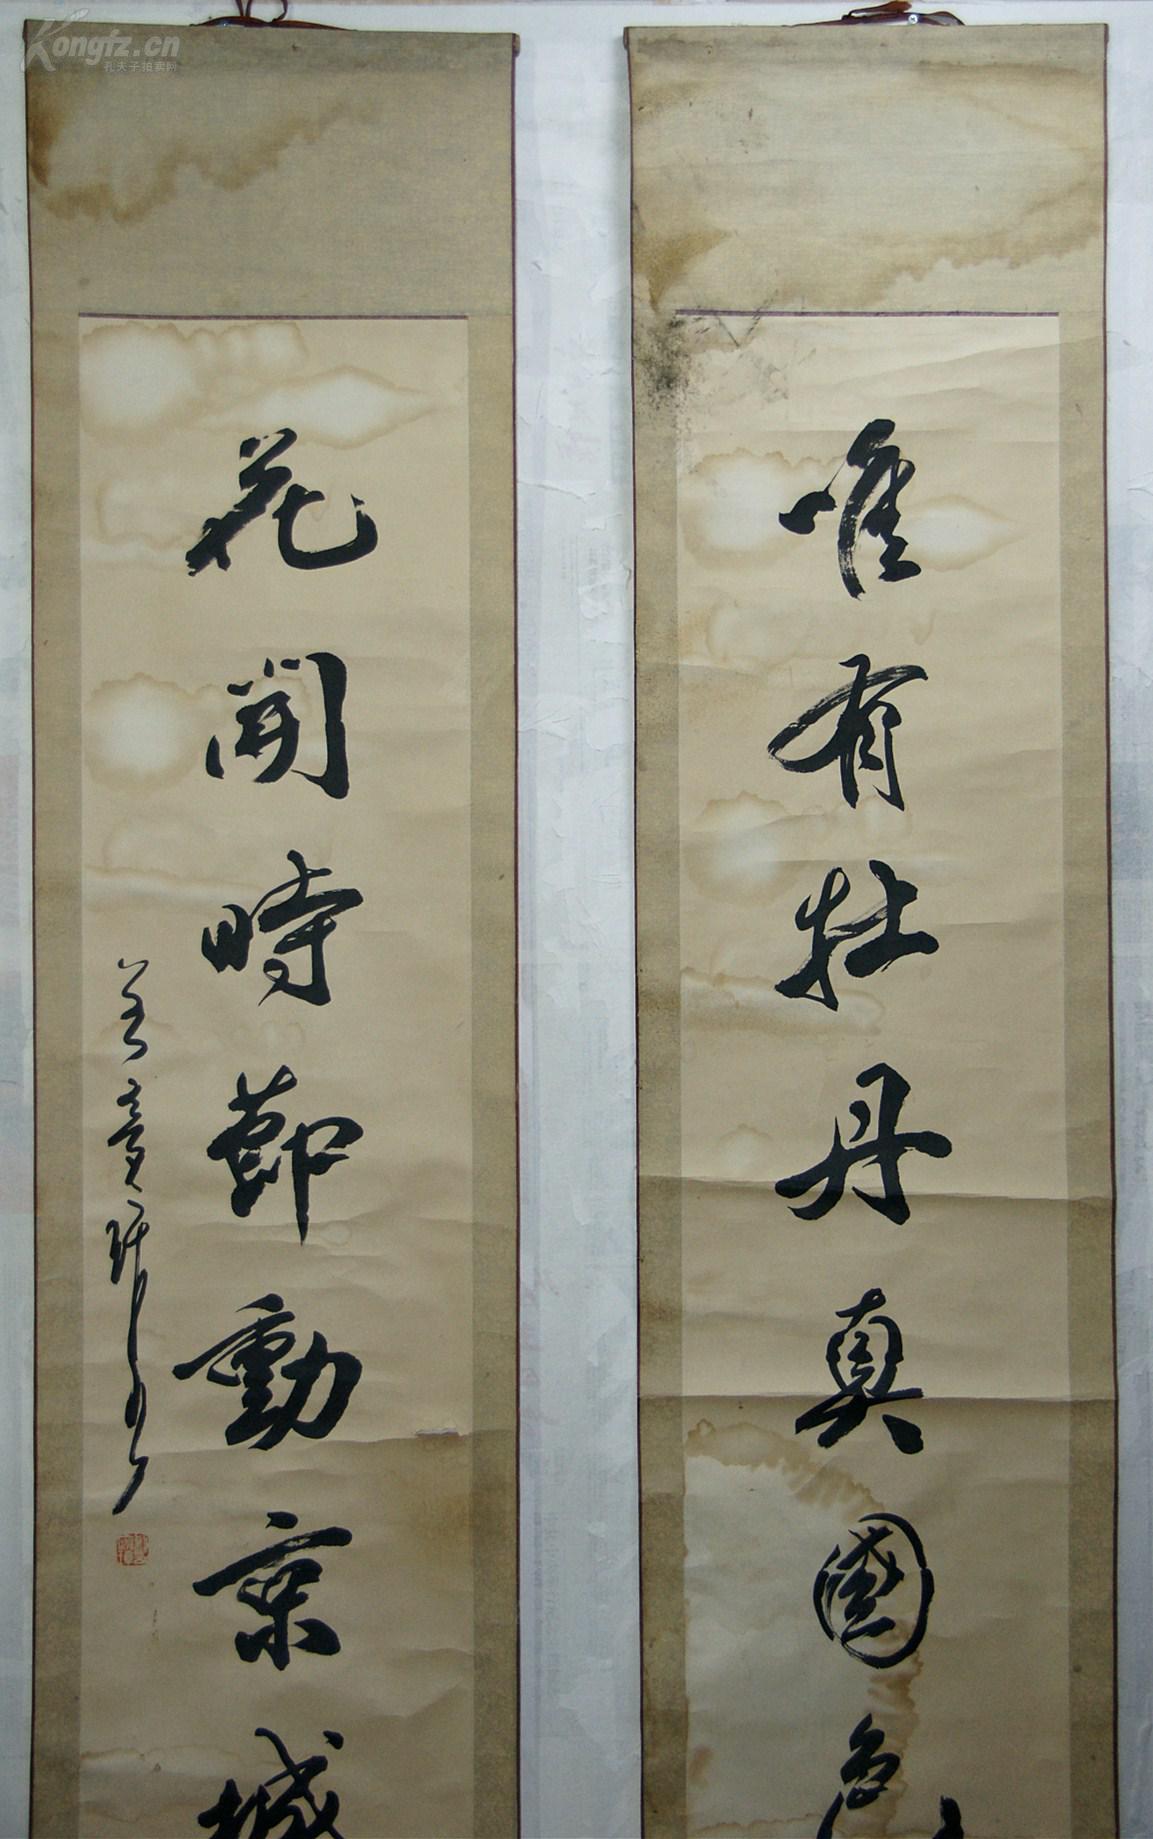 唯有牡丹真國色
花開時節動京城
Kongfz.cn
孔夫子拍卖网